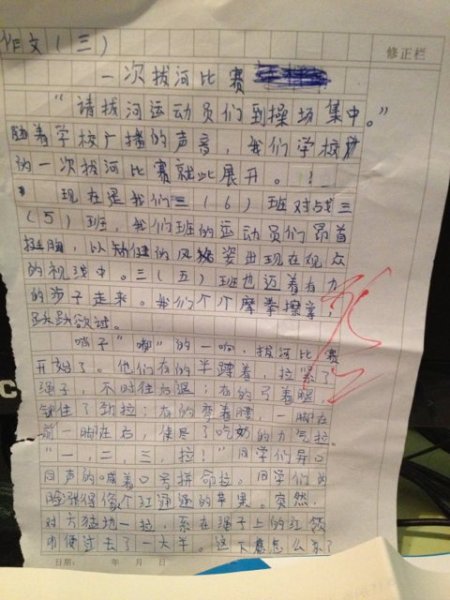 作文（三）
修正栏
一次拔河比赛
“请拔河运动员们到操场集中。”
随着学校广播的声音，我们学校
的一次拔河比赛就此展开。
现在是我们三（6）班对战三
（5）班，我们班的运动员们昂首
挺胸，以矫健的风姿出现在观众
的视线中。三（五）班也迈着有力
的步子走来。我们个个摩拳擦掌，
跃跃欲试。
哨子“嘟”的一响，拔河比赛
开始了。他们有的半蹲着，拉紧了
绳子，不时往后退；有的弓着腿，
住了劲拉；有的弯着腰，一脚在
前一脚在后，使尽了吃奶的力气拉
“一，二，三，拉！”同学们异口
同声的喊着口号拼命拉。同学们的
脸张得像个红通通的苹果。突然，
对方猛地一拉，系在绳子上的红领
巾便过去了一大半。这下意怎么办了
日期： 年 月 日